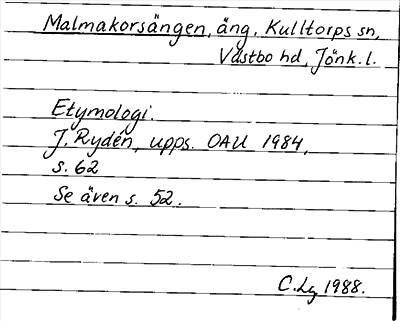 Malmakorsängen, äng, Kulltorps sn,
Västbo hd, Jönk. l.
Etymologi.
J. Rydén, upps. OAU 1984,
s. 62
Se även s. 52.
C. Lg 1988.